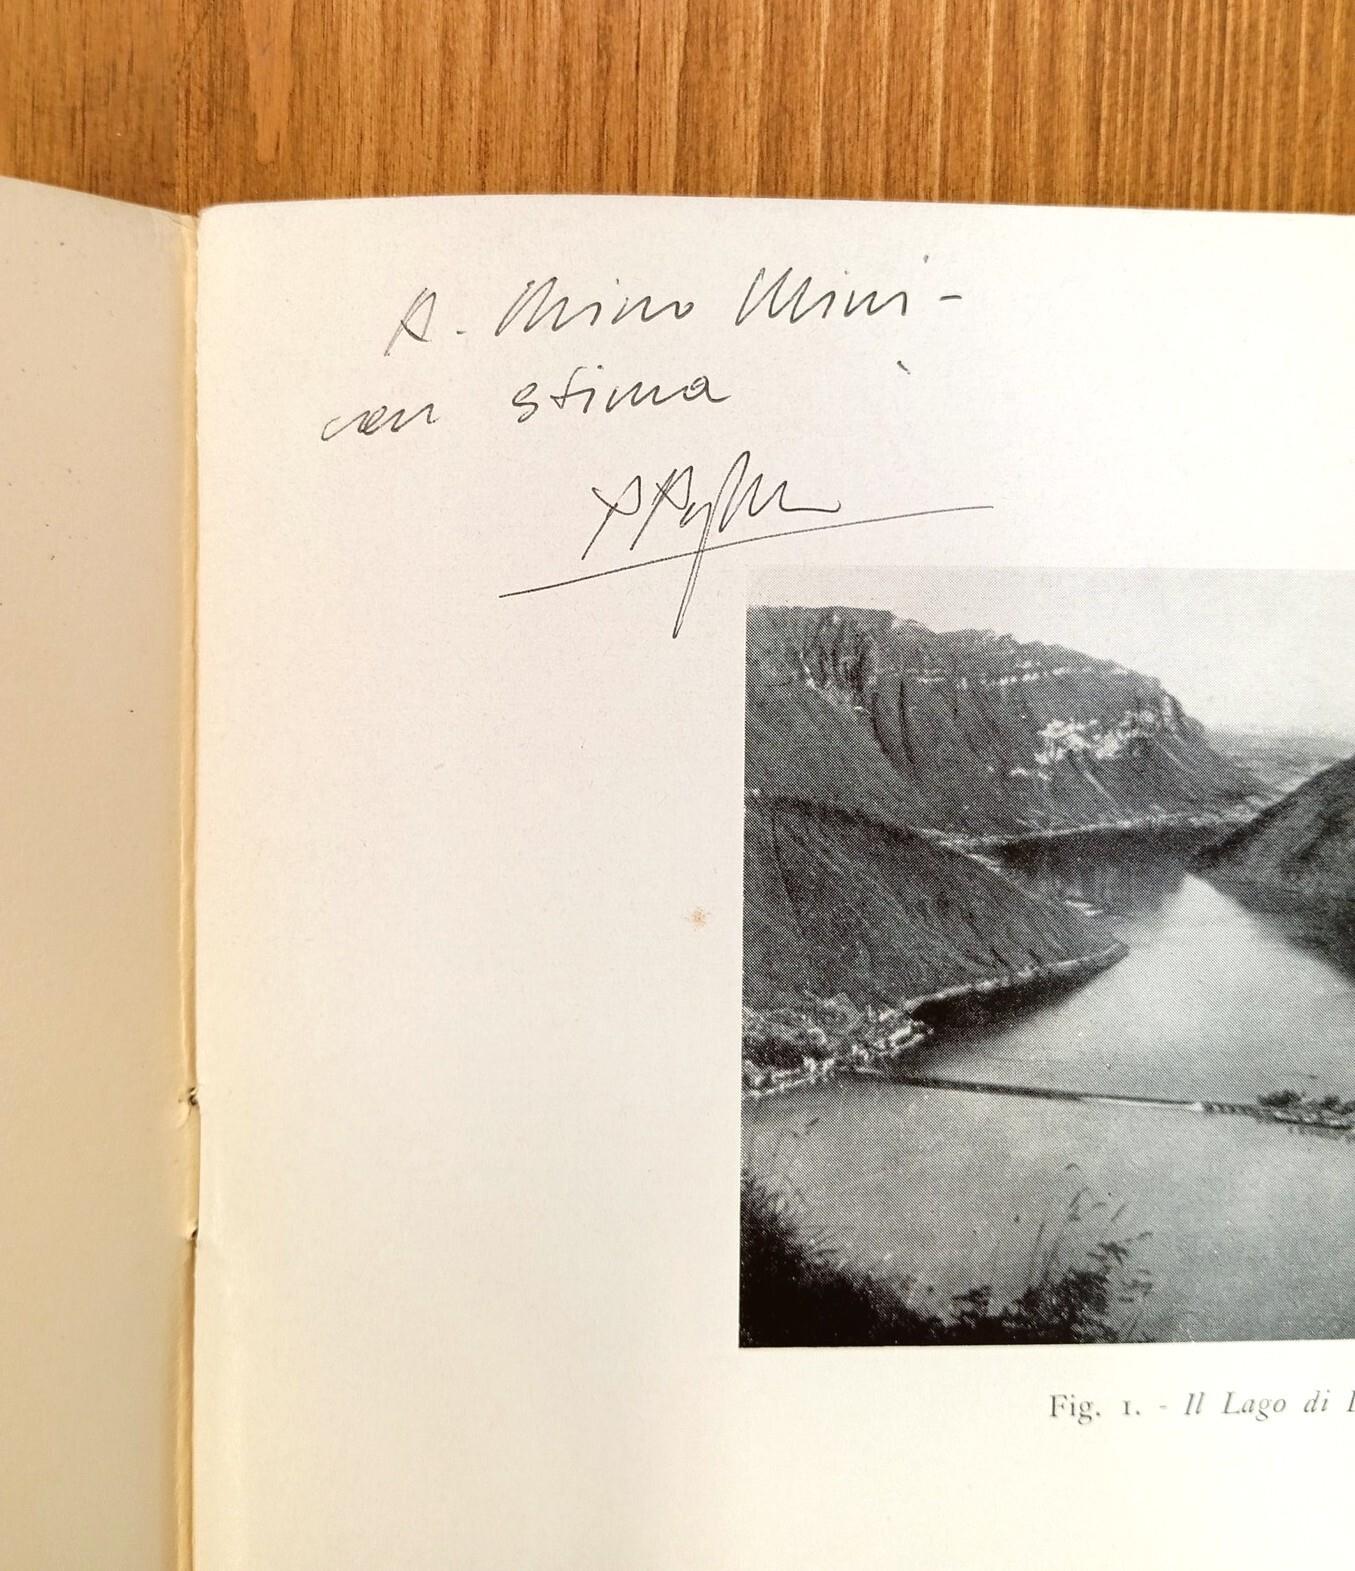 A. Mino Mini -
con stima
Fig. 1. - Il Lago di